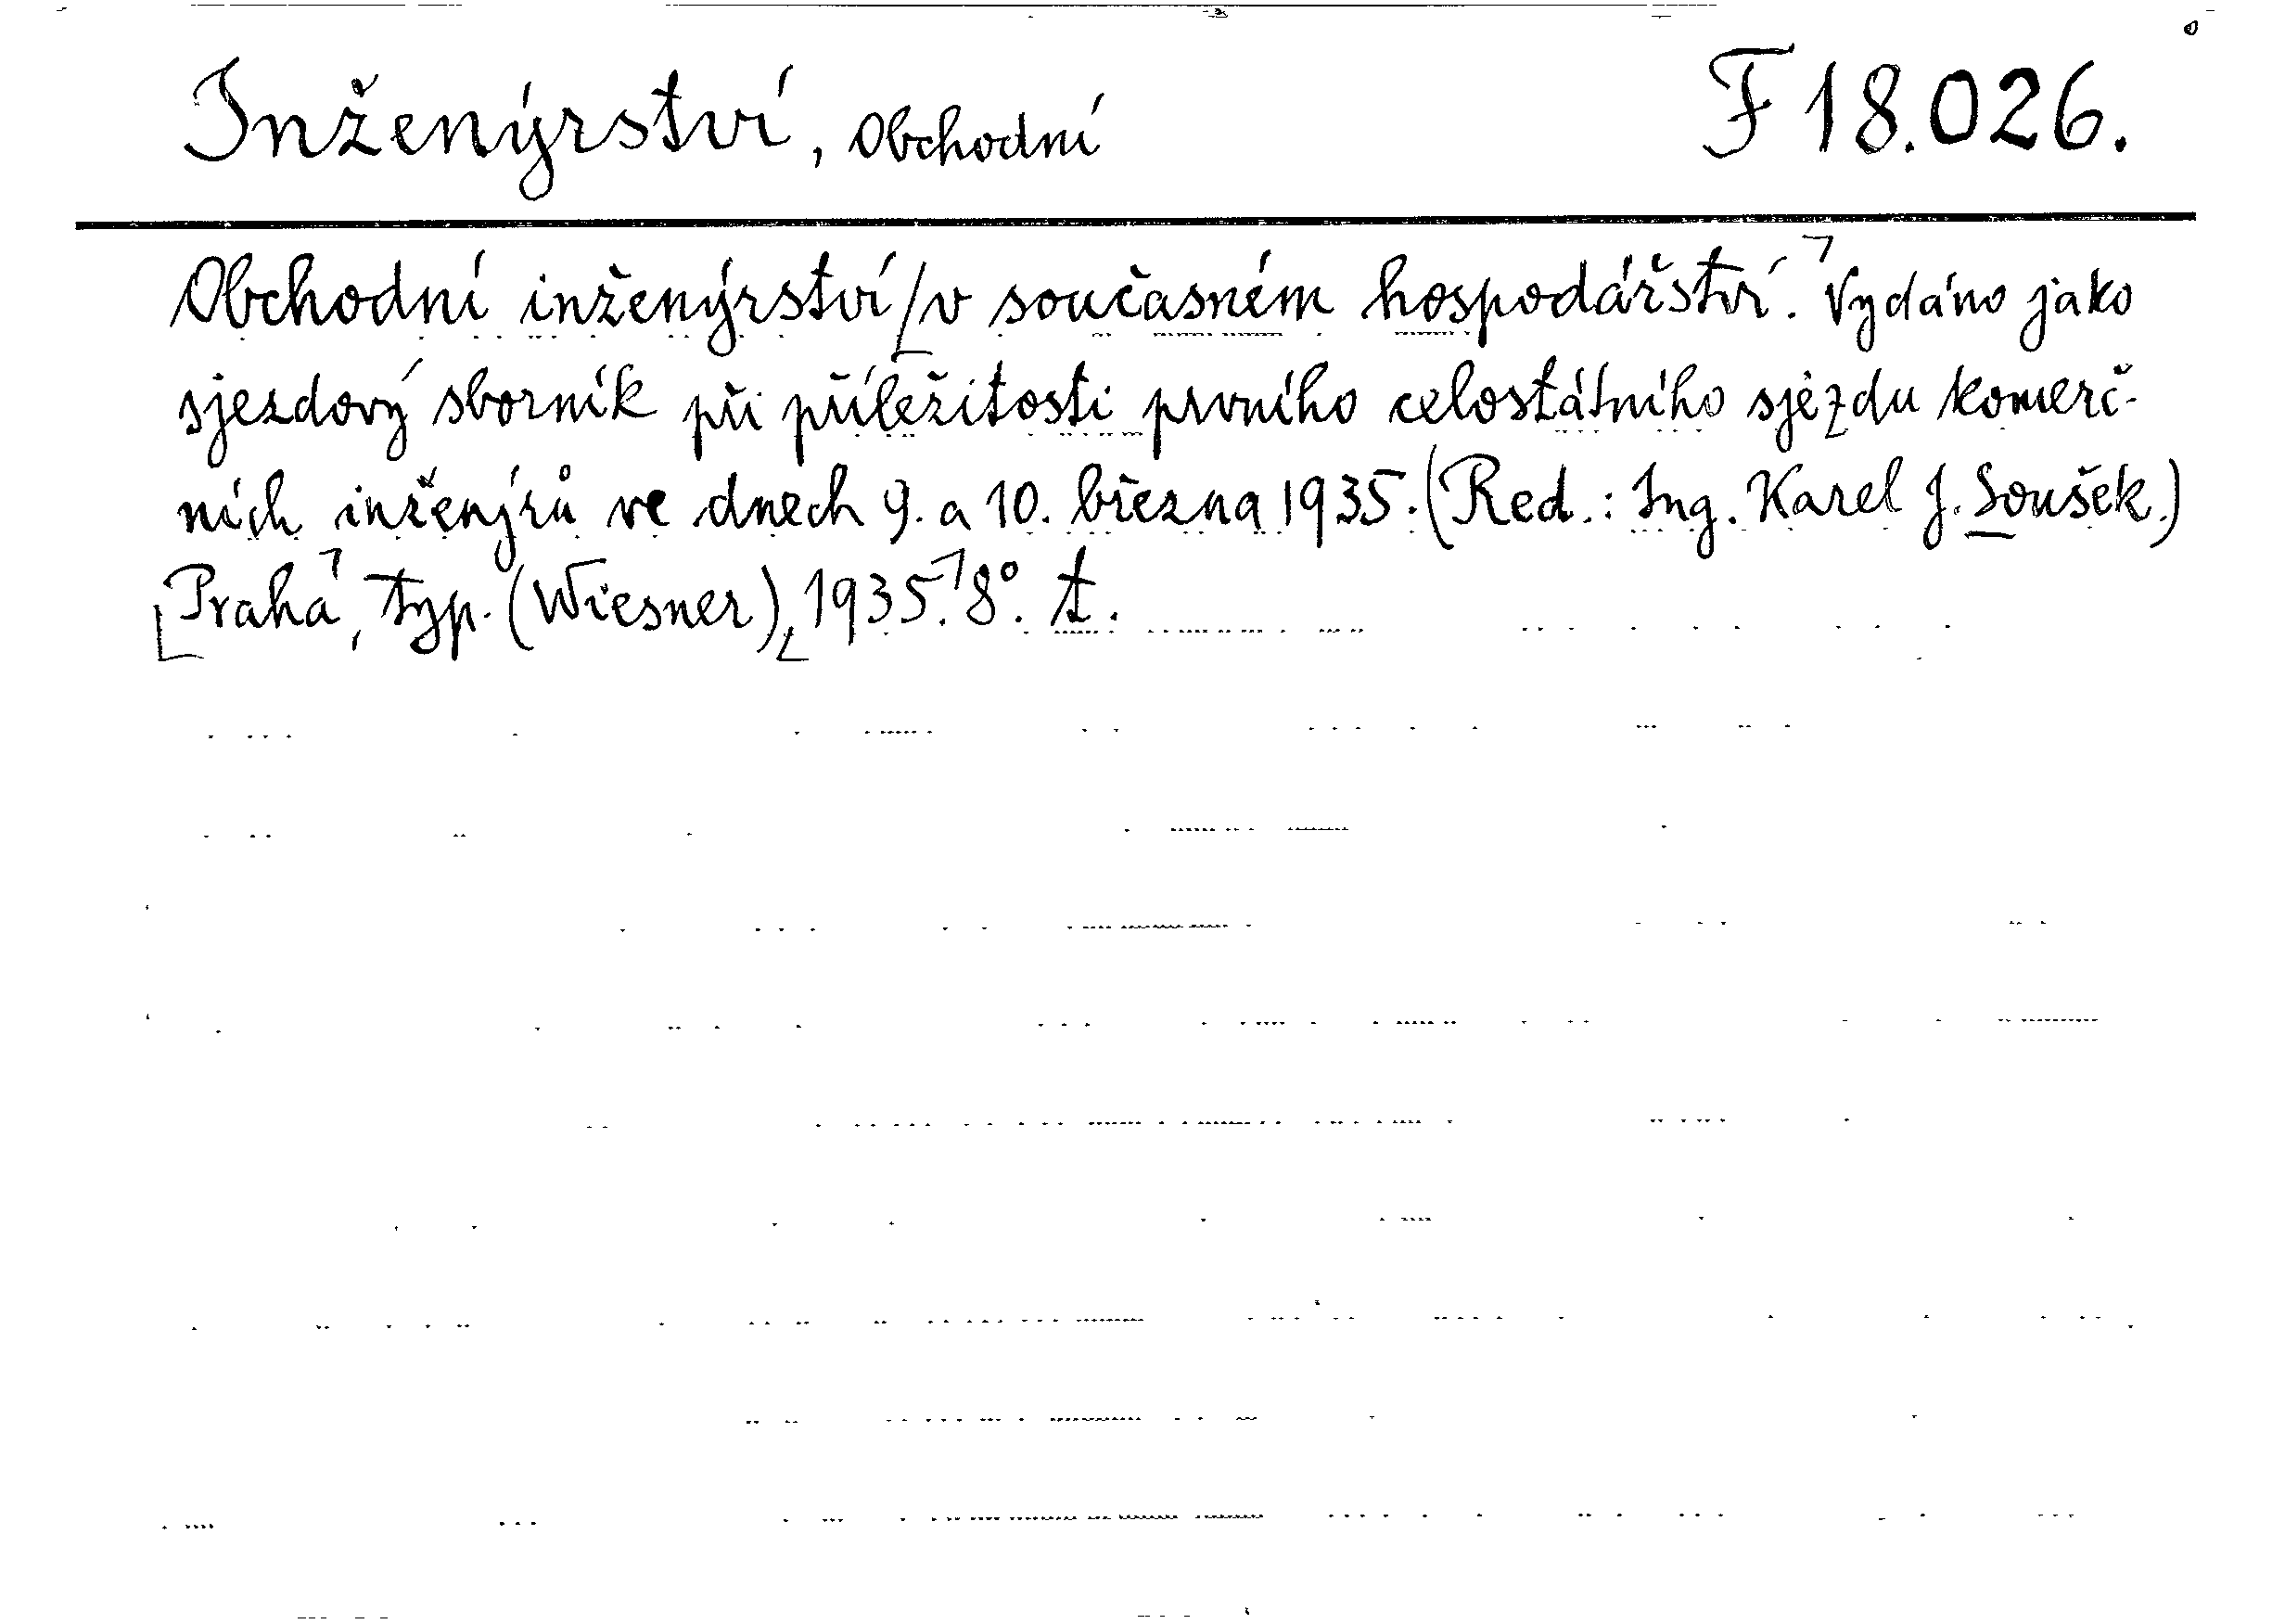 Inženýrství, Obchodní F 18.026.
Obchodní inženýrství v současném hospodářství. Vydáno jako
sjezdový sborník při příležitosti prvního celostátního sjezdu komerč-
ních inženýrů ve dnech 9. a 10. března 1935. (Red.: Ing. Karel J. Soušek.)
Praha, typ. (Wiesner), 1935. 8°. t.